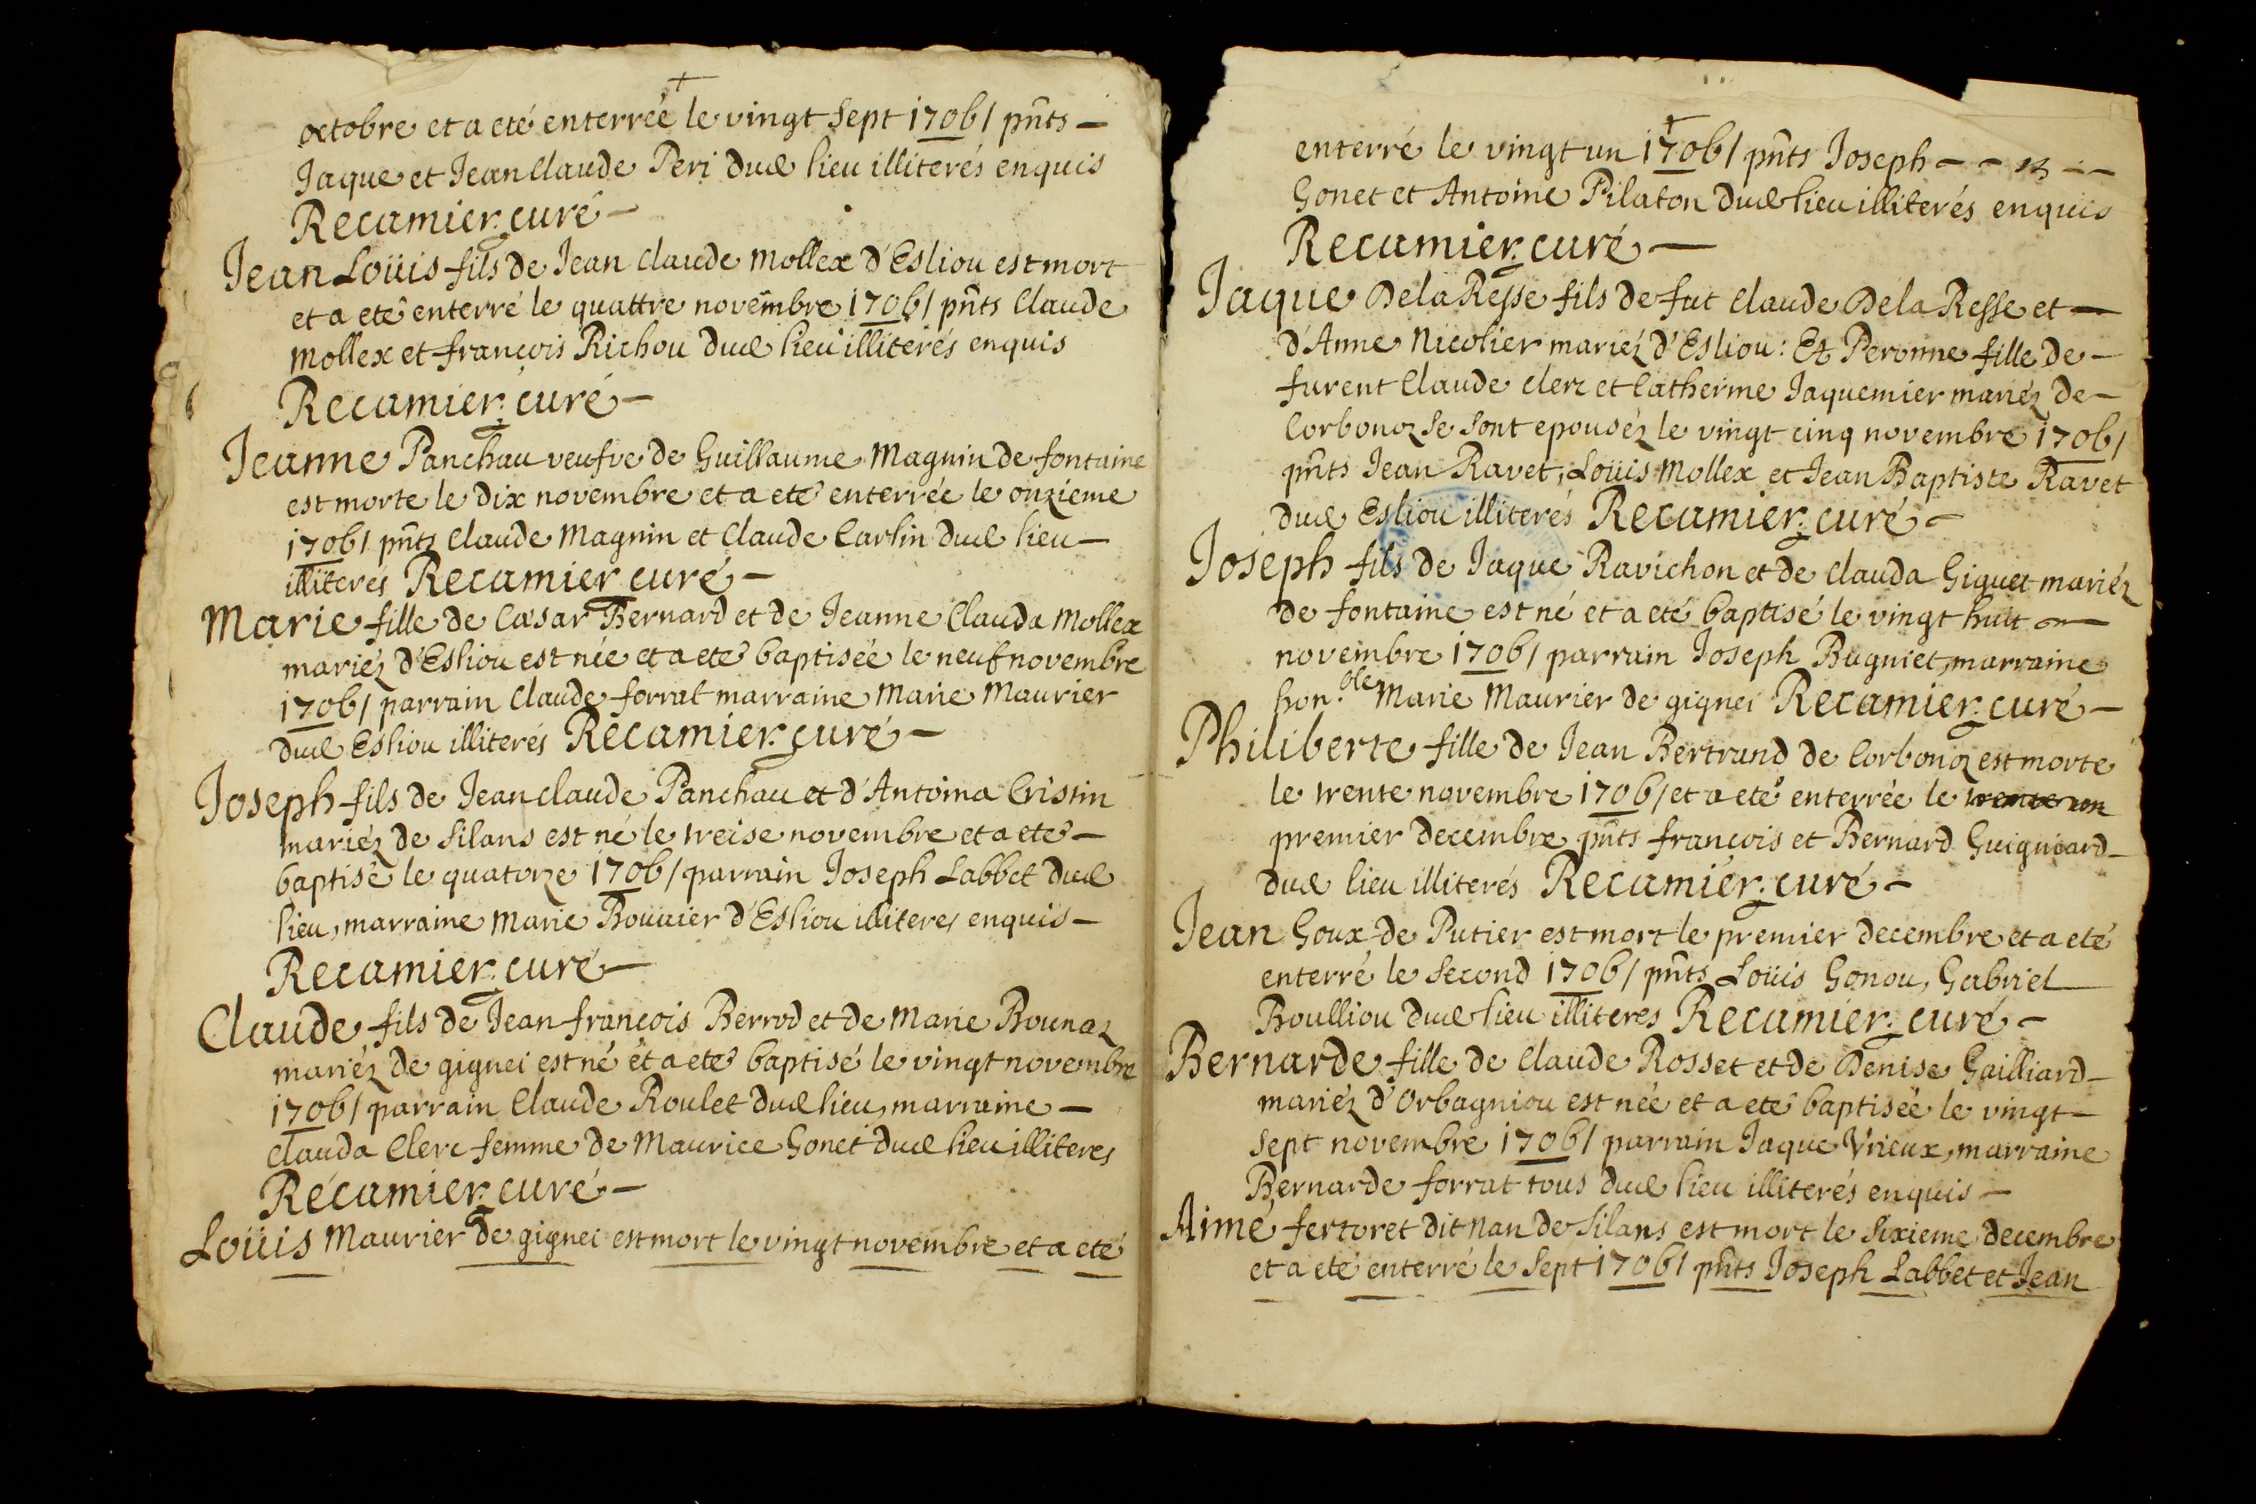 octobre et a eté enterrée le vingt sept 1706/ pnts —
Jaque et Jean Claude Peri dud lieu illiterés enquis
Recamier curé —
Jean Loüis fils de Jean Claude Mollex d'Esliou est mort
et a eté enterré le quattre novembre 1706/ pnts Claude
Mollex et françois Richou dud lieu illiterés enquis
Recamier curé —
Jeanne Panchau veufve de Guillaume Magnin de fontaine
est morte le dix novembre et a eté enterrée le onzieme
1706/ pnts Claude Magnin et Claude Carlin dud lieu —
illiterés Recamier curé —
Marie fille de Cæsar Bernard et de Jeanne Clauda Mollex
mariéz d'Esliou est née et a eté baptisée le neuf novembre
1706/ parrain Claude forrat marraine Marie Maurier
dud Esliou illiterés Recamier curé —
Joseph fils de Jean claude Panchau et d'Antoina Cristin
mariéz de silans est né le treise novembre et a eté —
baptisé le quatorze 1706/ parrain Joseph Labbet dud
lieu, marraine Marie Bouuier d'Esliou illiteres enquis —
Recamier curé —
Claude fils de Jean françois Berrod et de Marie Bounaz
mariéz de gignei est né et a eté baptisé le vingt novembre
1706/ parrain Claude Roulet dud lieu, marraine —
Clauda Clerc femme de Maurice Gonet dud lieu illiteres
Recamier curé —
Loüis Maurier de gignei est mort le vingt novembre et a eté
enterré le vingt un 1706/ pnts Joseph
Gonet et Antoine Pilaton dud lieu illiterés enquis
Recamier curé —
Jaque DelaResse fils de fut Claude DelaResse et —
d'Anne Nicolier mariéz d'Esliou: Et Peronne fille de —
furent Claude Clerc et Catherine Jaquemier mariéz de —
Corbonoz se sont epouséz le vingt cinq novembre 1706/
pnts Jean Ravet, Loüis Mollex et Jean Baptiste Ravet
dud Esliou illiterés Recamier curé —
Joseph fils de Jaque Ravichon et de Clauda Giguet mariéz
de fontaine est né et a eté baptisé le vingt huit —
novembre 1706/ parrain Joseph Bugniet, marraine
hon.ble Marie Maurier de gignei Recamier curé —
Philiberte fille de Jean Bertrand de Corbonoz est morte
le trente novembre 1706/ et a eté enterrée le trente un
premier decembre pnts françois et Bernard Guiguiard —
dud lieu illiterés Recamier curé —
Jean Goux de Putier est mort le premier decembre et a eté
enterré le second 1706/ pnts Loüis Gonou, Gabriel
Boulliou dud lieu illiteres Recamier curé —
Bernarde fille de Claude Rosset et de Denise Gailliard —
mariéz d'Orbagniou est née et a eté baptisée le vingt —
sept novembre 1706/ parrain Jaque Vrieux, marraine
Bernarde forrat tous dud lieu illiterés enquis —
Aimé fertoret dit Nan de silans est mort le sixieme decembre
et a eté enterré le sept 1706/ pnts Joseph Labbet et Jean